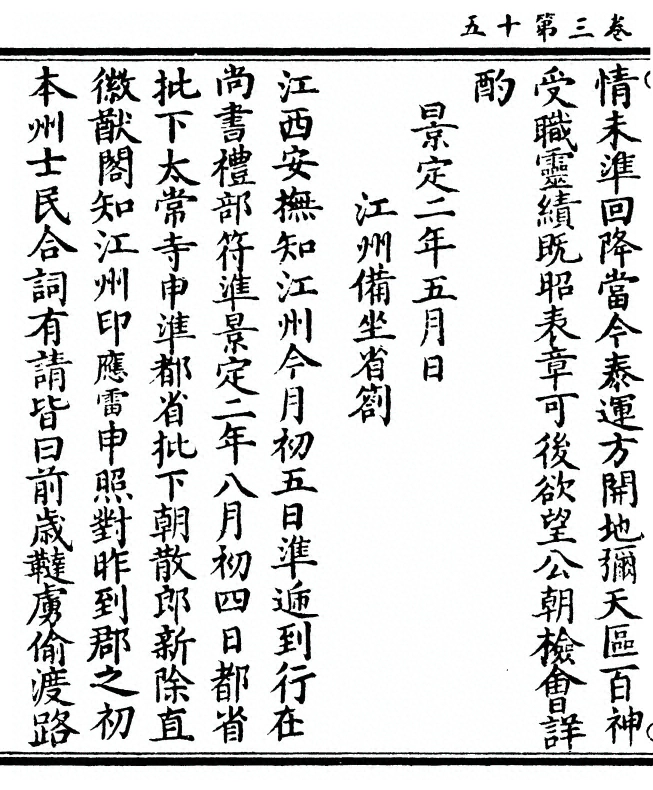 卷三第十五
情未準回降當今泰運方開地彌天區百神
受職靈績既昭表章可後欲望公朝檢會詳
酌
景定二年五月日
江州備坐省劄
江西安撫知江州今月初五日準遞到行在
尚書禮部符準景定二年八月初四日都省
批下太常寺申準都省批下朝散郎新除直
徽猷閣知江州印應雷申照對昨到郡之初
本州士民合詞有請皆曰前歲韃虜偷渡路